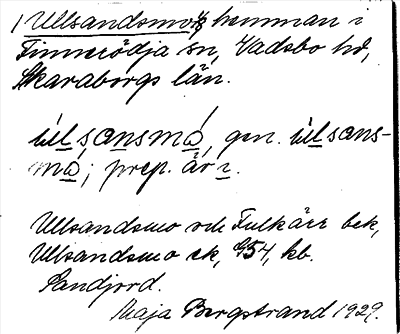 1 Ullsandsmo, 1/8 hemman i
Finnerödja sn, Vadsbo hd,
Skaraborgs län.
úlsansmó, gen. úlsans-
mó; prep. är i.
Ullsandsmo och Fulkärr bek,
Ullsandsmo ek, G54, kb.
Sandjord.
Maja Bergstrand 1929.